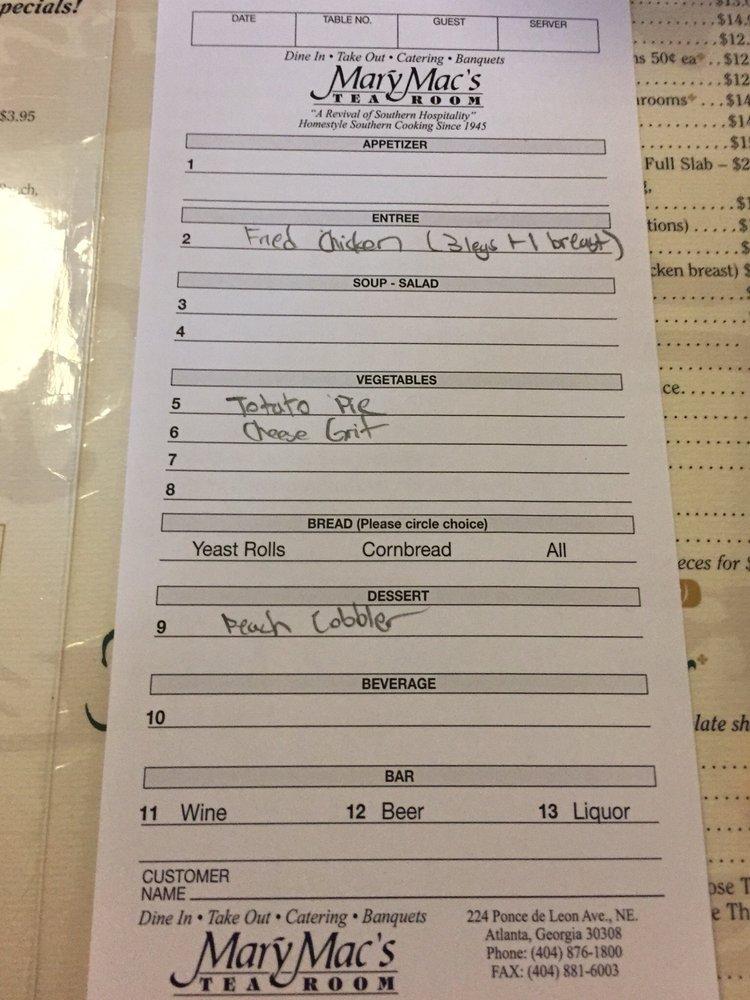 pecials!
$3.95
DATE TABLE NO. GUEST SERVER
Dine In • Take Out • Catering • Banquets
Mary Mac's
TEA ROOM
"A Revival of Southern Hospitality"
Homestyle Southern Cooking Since 1945
APPETIZER
1
ENTREE
2 Fried Chicken (3 legs + 1 breast)
SOUP - SALAD
3
4
VEGETABLES
5 Totato Pie
6 Cheese Grit
7
8
BREAD (Please circle choice)
Yeast Rolls Cornbread All
DESSERT
9 Peach Cobbler
BEVERAGE
10
BAR
11 Wine 12 Beer 13 Liquor
CUSTOMER
NAME
Dine In • Take Out • Catering • Banquets
Mary Mac's
TEA ROOM
224 Ponce de Leon Ave., NE.
Atlanta, Georgia 30308
Phone: (404) 876-1800
FAX: (404) 881-6003
50¢ ea ..$12
rooms ...$14
Full Slab – $2
tions) .....$
cken breast) $
ce.
eces for $
late sh